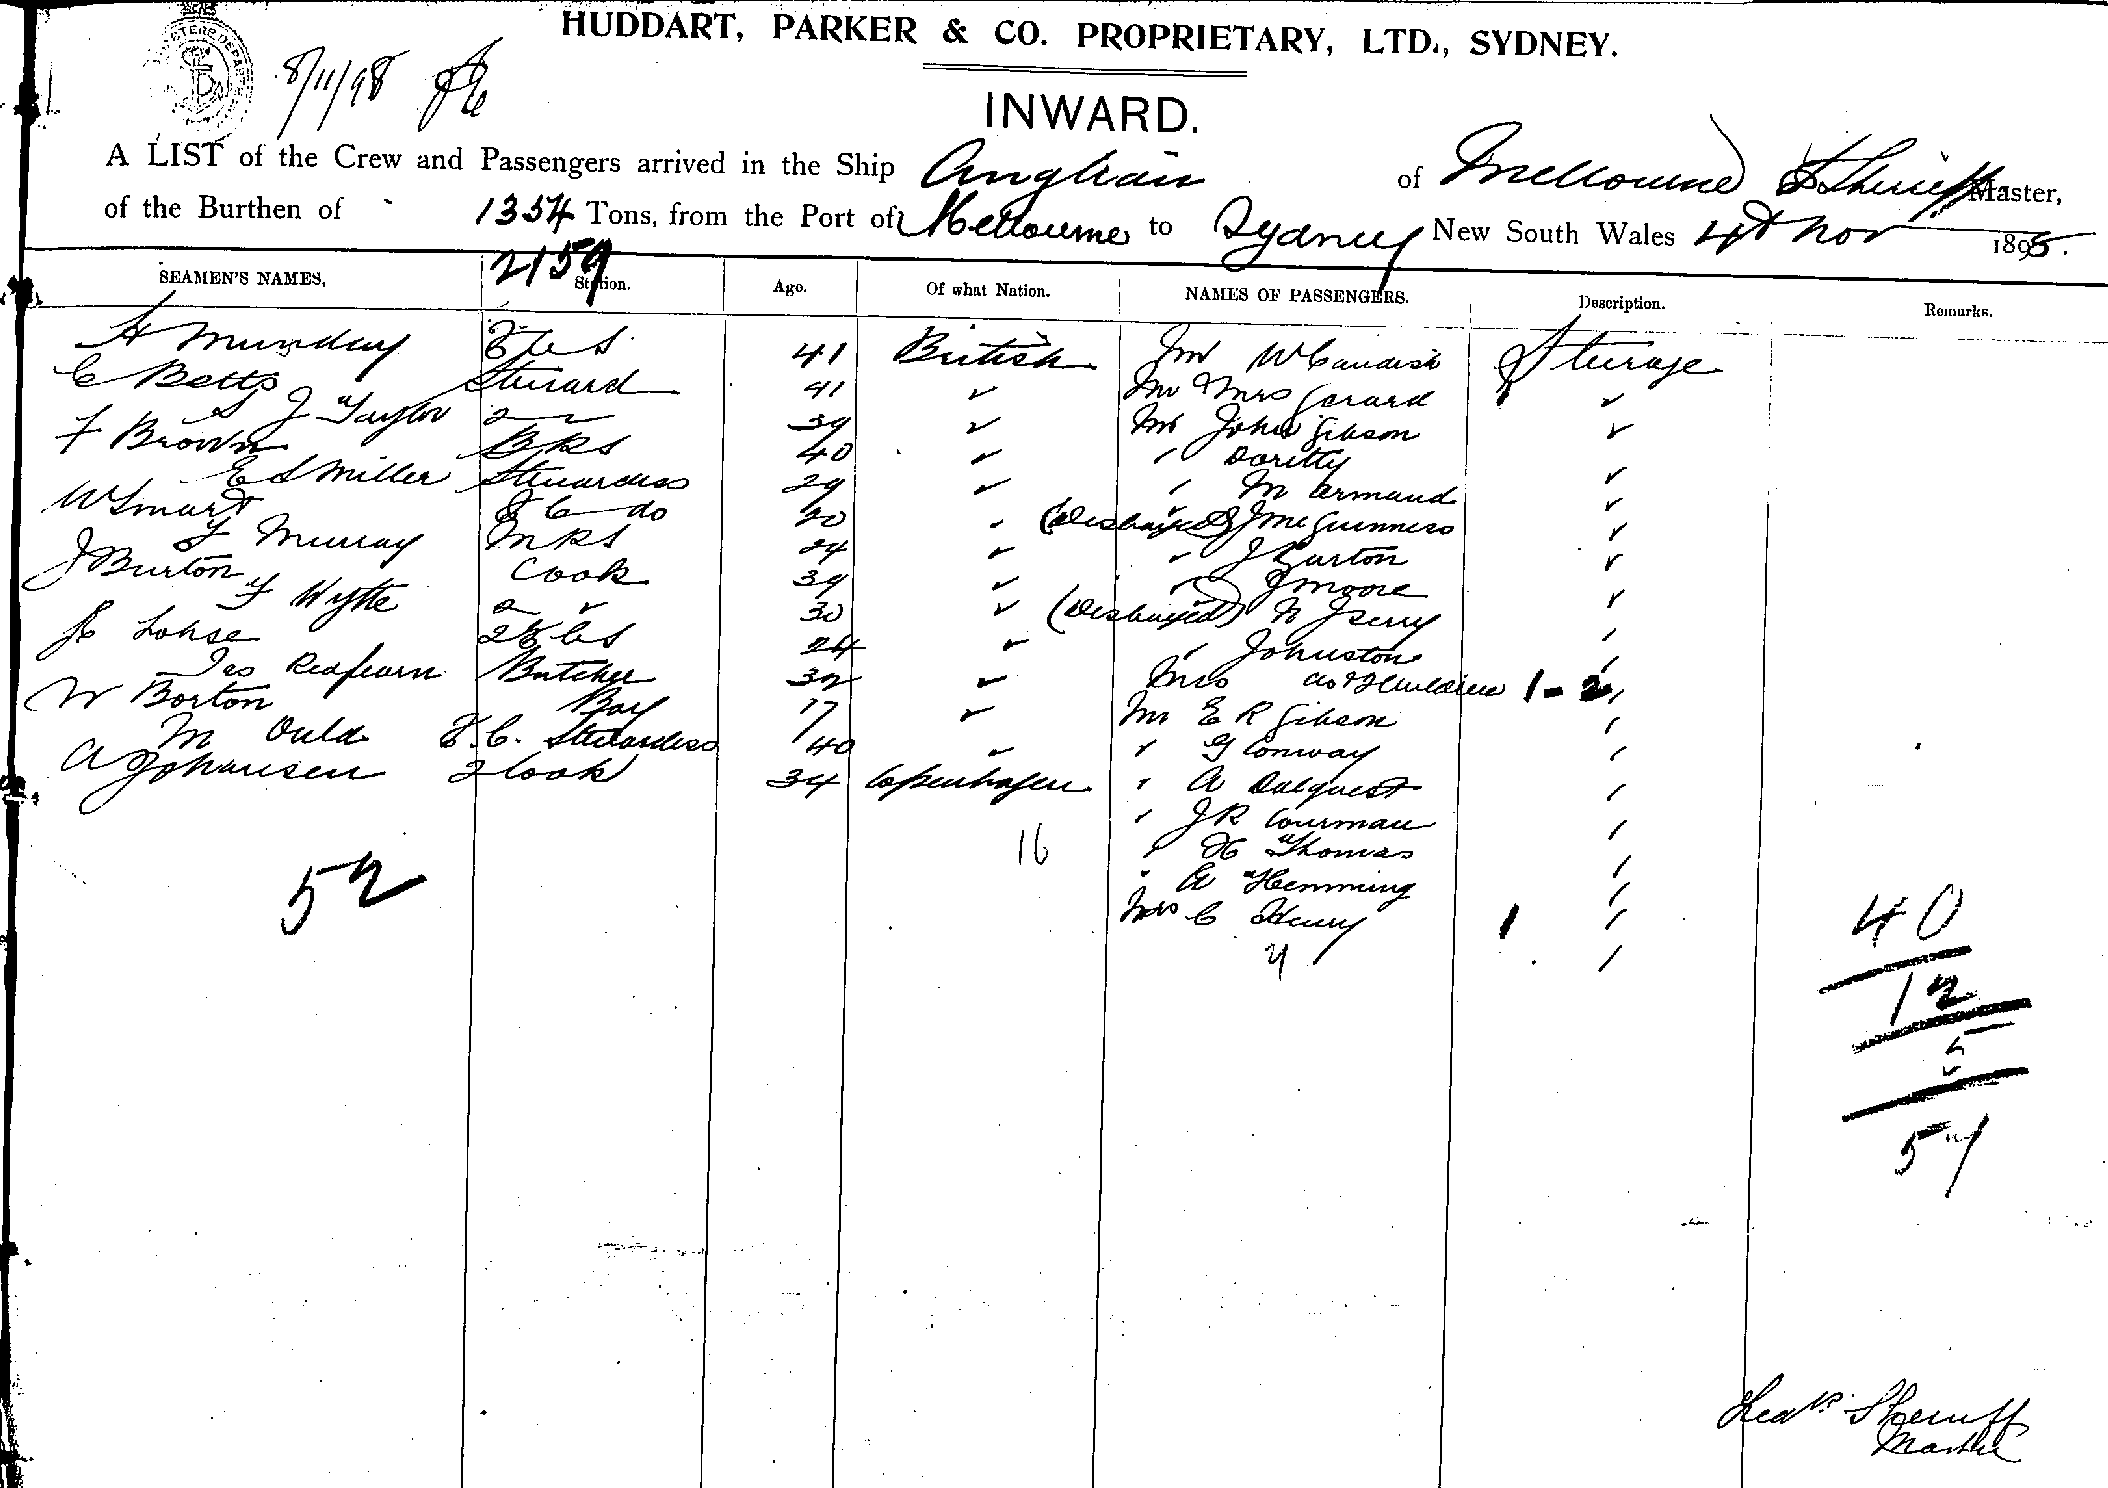 HUDDART, PARKER & CO. PROPRIETARY, LTD., SYDNEY.
8/11/98
INWARD.
A LIST of the Crew and Passengers arrived in the Ship Anglian of Melbourne Master,
of the Burthen of 1354 Tons, from the Port of Melbourne to Sydney New South Wales 4th Nov 1898.
2159
SEAMEN'S NAMES, Station. Age. Of what Nation. NAMES OF PASSENGERS. Description. Remarks.
H Munday 41 British Mr W Candish Steerage
C Betts Steward 41 Mr & Mrs Gerard
S J Taylor 39 Mr John Gibson
F Brown BKS 40 Doritty
E S Miller Stewardess 29 M Armand
W Smart do 20 J McGuinness
F Murray MRS 24 J Barton
J Burton Cook 39 J Moore
F Wytte 30
Lohse 24 Johnston
Jas Redfearn Butcher 32 Mrs do & 2 Children 1-2
W Borton Boy 17 Mr E R Gibson
M Ould F.C. Stewardess 40 G Conway
A Johansen 2 Cook 34 Copenhagen A Dalquest
J R Courman
16 H Thomas
A Hemming
52 Mrs C Henry 1
40
12
5
57
Sherriff
Master